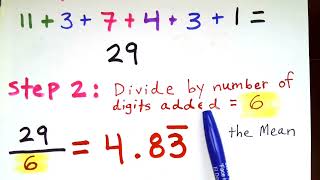 11 + 3 + 7 + 4 + 3 + 1 =
29
Step 2: Divide by number of
digits added = 6
29/6 = 4.83̅ the Mean